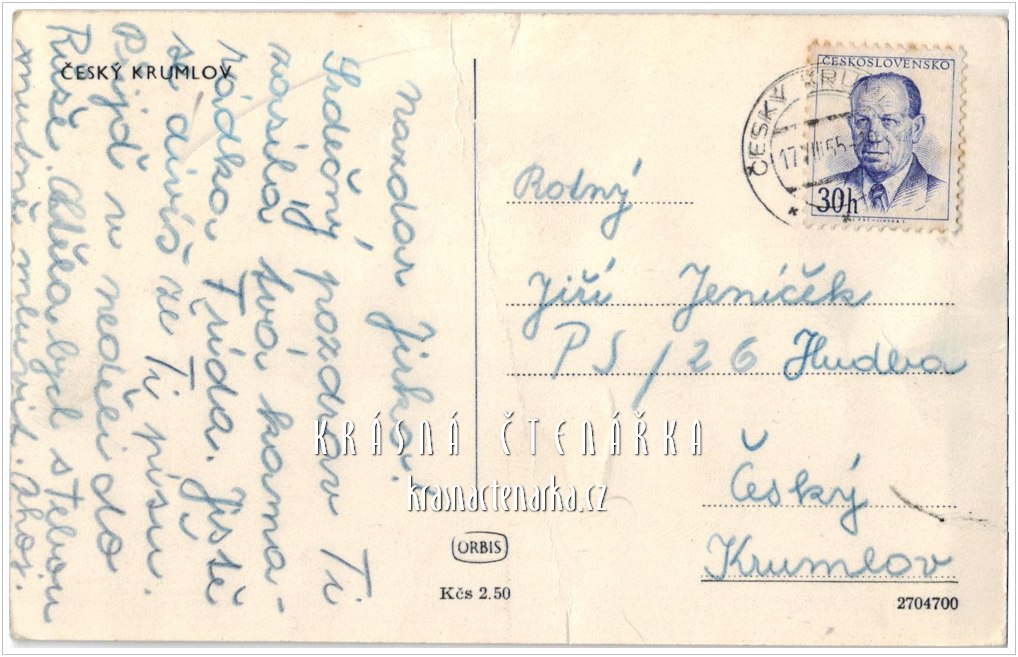 ČESKÝ KRUMLOV
nazdar Jirko.
Srdečný pozdrav Ti
posílá tvá kama-
rádka Frída. Jistě
se divíš že Ti píšu.
Přijď v neděli do
Růže. Chtěla bych s tebou
nutně mluvit. Ahoj.
ČESKOSLOVENSKO
30h
ČESKÝ KRUML
17.VIII.55-18
Rotný
Jiří Jeníček
PS/26 Hudba
Český
Krumlov
KRÁSNÁ ČTENÁŘKA
krasnactenarka.cz
ORBIS
Kčs 2.50
2704700